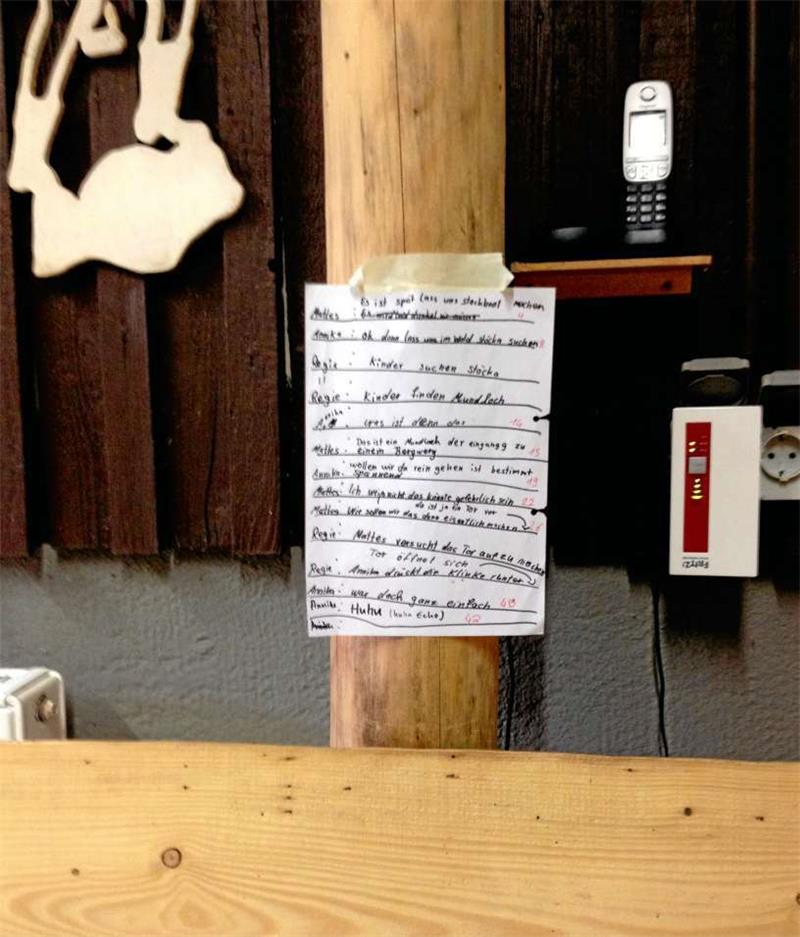 Es ist spät lass uns stockbrot machen
Mattes : Es wird bald dunkel 4
Annika : Oh dann lass uns im Wald stöcka suchen 8
Regie : Kinder suchen stöcka
"
Regie : Kinder finden Mundloch
Annika : was ist denn das 14
Mattes : Das ist ein Mundloch der eingang zu 15
einem Bergwerg
Annika : wollen wir da rein gehen ist bestimmt 19
spannend
Mattes : Ich weiß nicht das könnte gefehrlich sein 22
da ist ja ein Tor vor
Mattes : Wie sollen wir das denn eigentlich machen 26
Regie : Mattes versucht das Tor auf zu machen
Tor öffnet sich
Regie : Annika drückt die Klinke runter
Annika : war doch ganz einfach 40
Annika : Huhu (huhu Echo) 42
Annika :
FRITZ!